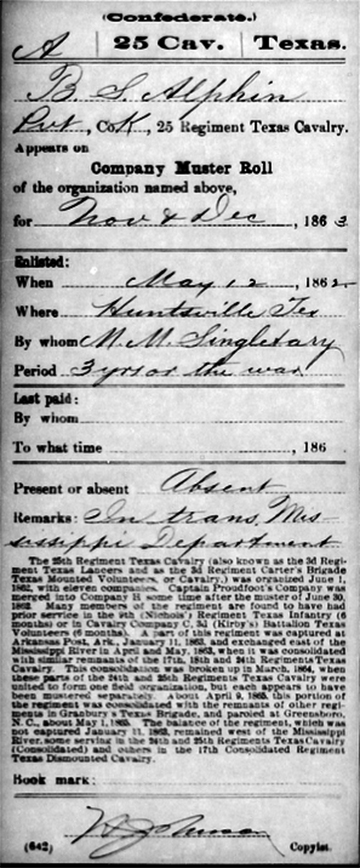 (Confederate.)
A | 25 Cav. | Texas.
B. S. Alphin
Pvt, Co. K, 25 Regiment Texas Cavalry.
Appears on
Company Muster Roll
of the organization named above,
for Nov & Dec, 186 3
Enlisted:
When May 12, 1862
Where Huntsville Tex
By whom M. M. Singletary
Period 3 yrs or the war
Last paid:
By whom
To what time , 186 .
Present or absent Absent
Remarks: In trans. Mis
sissippi Department
The 25th Regiment Texas Cavalry (also known as the 3d Regi-
ment Texas Lancers and as the 3d Regiment Carter's Brigade
Texas Mounted Volunteers, or Cavalry,) was organized June 1,
1862, with eleven companies. Captain Proudfoot's Company was
merged into Company E some time after the muster of June 30,
1862. Many members of the regiment are found to have had
prior service in the 9th (Nichols's) Regiment Texas Infantry (6
months) or in Cavalry Company C, 3d (Kirby's) Battalion Texas
Volunteers (6 months). A part of this regiment was captured at
Arkansas Post, Ark., January 11, 1863, and exchanged east of the
Mississippi River in April and May, 1863, when it was consolidated
with similar remnants of the 17th, 18th and 24th Regiments Texas
Cavalry. This consolidation was broken up in March, 1864, when
these parts of the 24th and 25th Regiments Texas Cavalry were
united to form one field organization, but each appears to have
been mustered separately. About April 9, 1865, this portion of
the regiment was consolidated with the remnants of other regi-
ments in Granbury's Texas Brigade, and paroled at Greensboro,
N. C., about May 1, 1865. The balance of the regiment, which was
not captured January 11, 1863, remained west of the Mississippi
River, some serving in the 24th and 25th Regiments Texas Cavalry
(Consolidated) and others in the 17th Consolidated Regiment
Texas Dismounted Cavalry.
Book mark:
(642) Copyist.